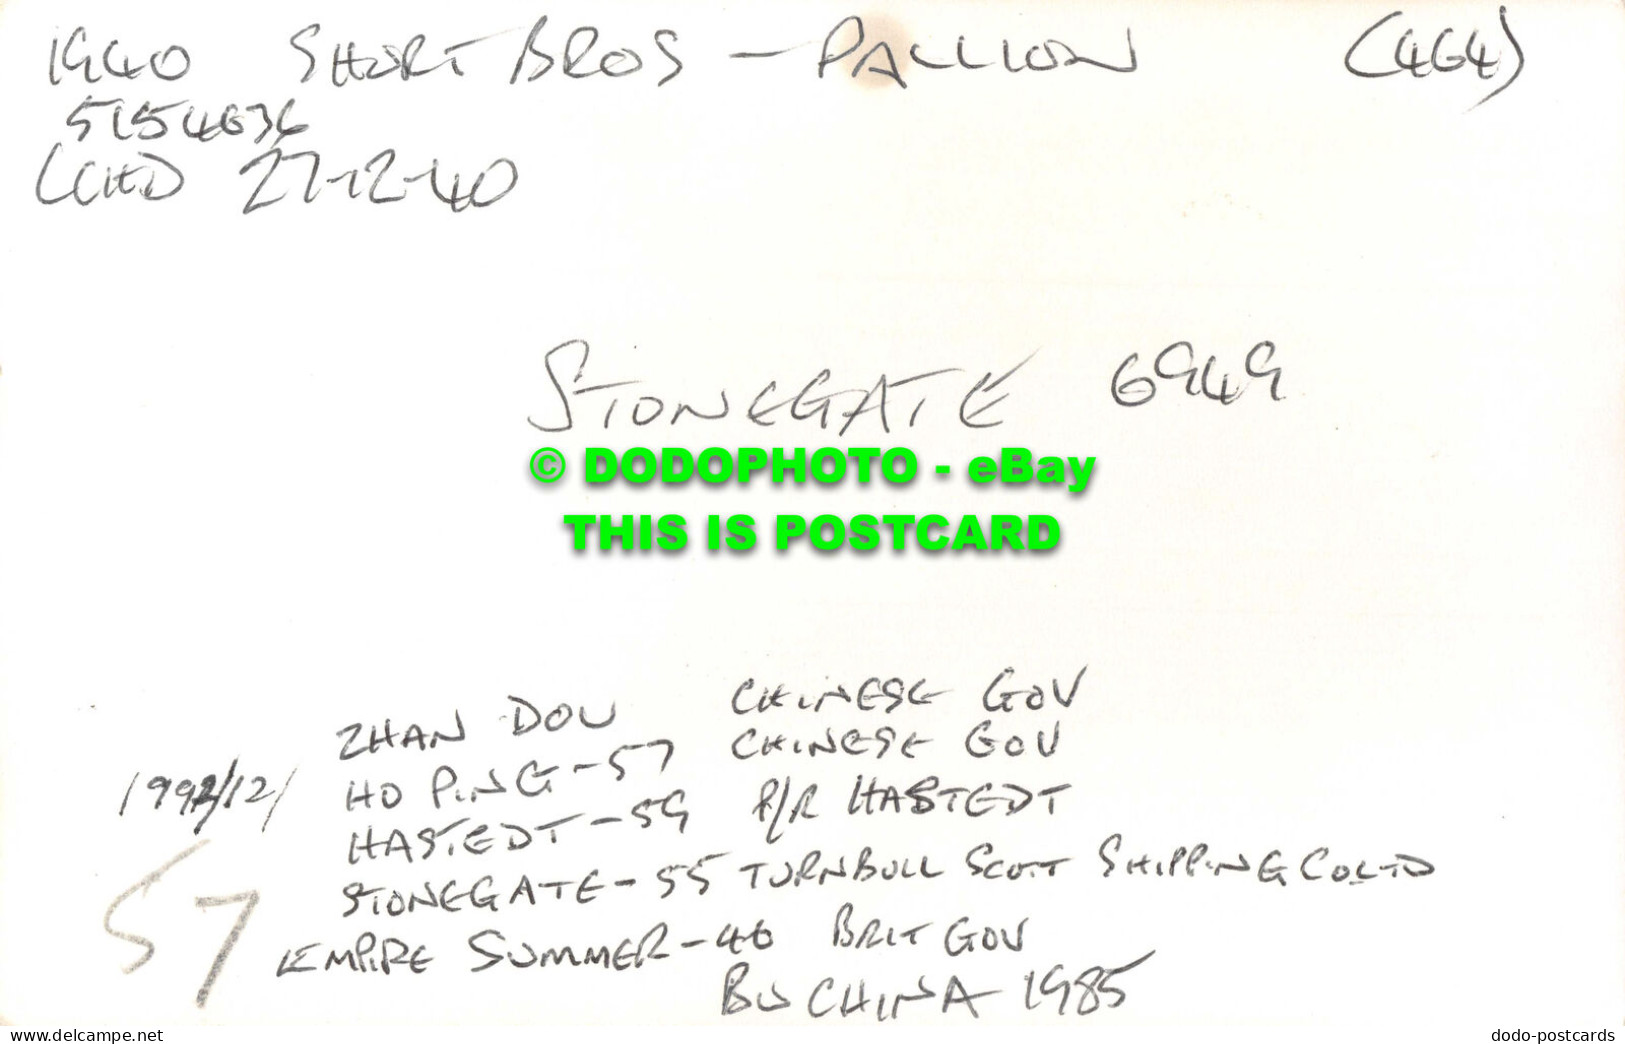 1940 SHORT BROS - PALLION (464)
5154636
LCHD 27-12-40
STONEGATE 6949
© DODOPHOTO - eBay
THIS IS POSTCARD
ZHAN DOU CHINESE GOV
HO PING - 57 CHINESE GOV
HASTEDT - 59 P/R HASTEDT
STONEGATE - 55 TURNBULL SCOTT SHIPPING CO LTD
EMPIRE SUMMER - 46 BRIT GOV
BU CHINA 1985
57
www.delcampe.net
dodo-postcards